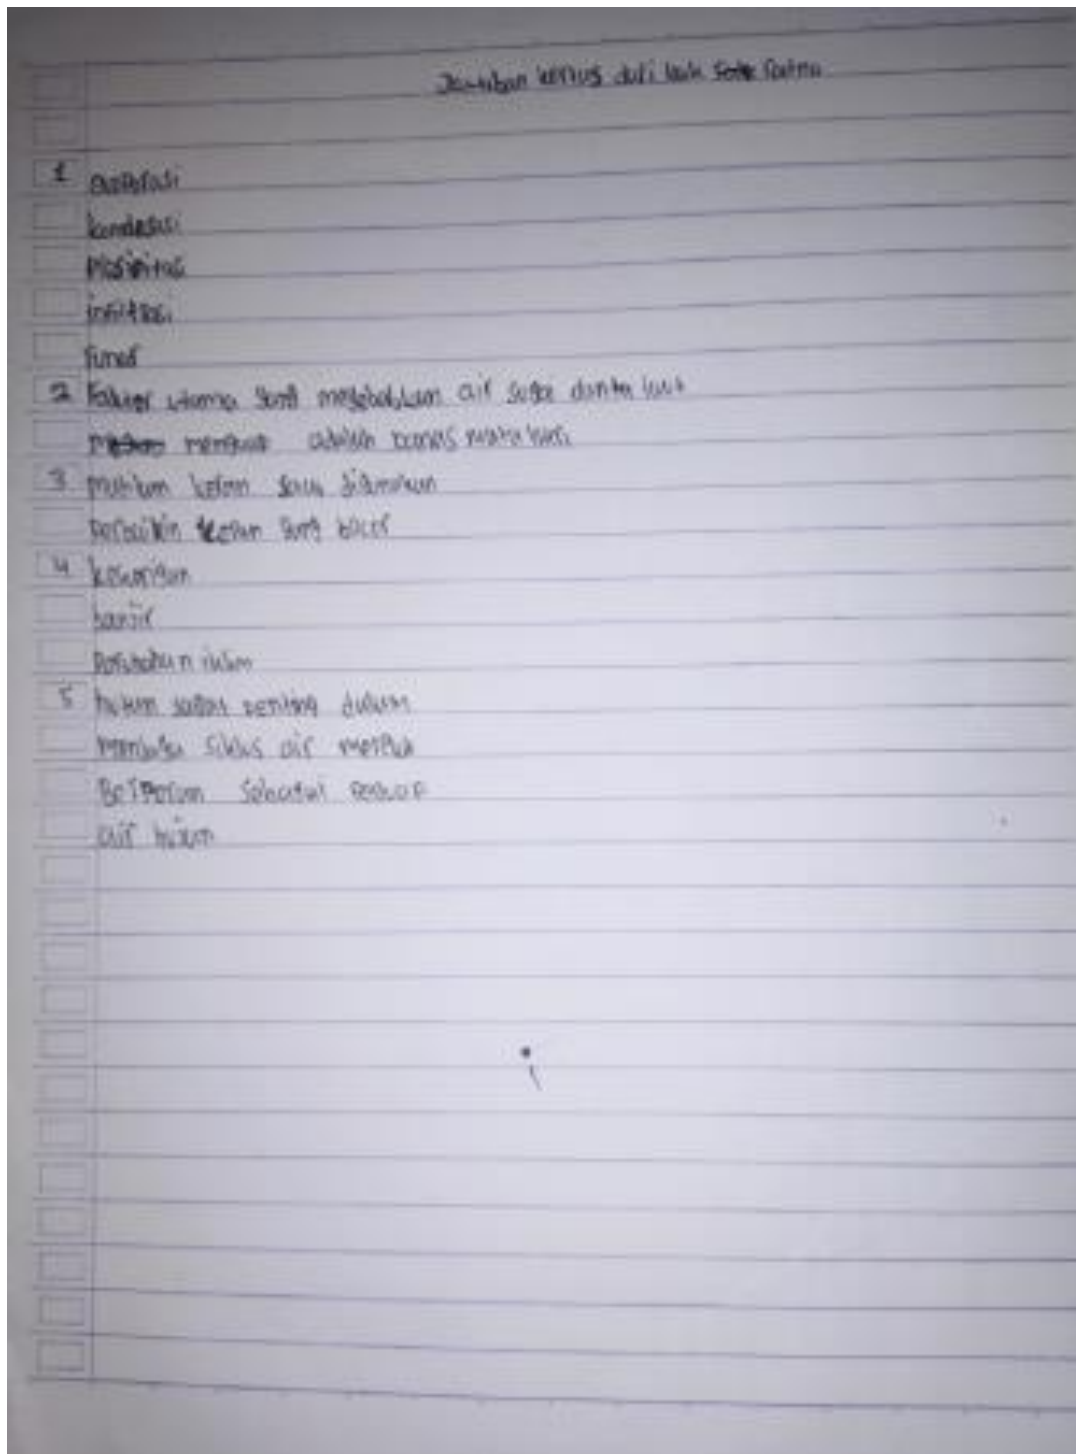 Jawaban kertas dari
1 evaporasi
kondesasi
infiltrasi
runof
2 Faktor utama yang meyebabkan air sugai danta laut
menguap adalah panas matahari
3 matikan keran saus digunakan
Perbaikin keran yang bocor
4 kekurigan
banjir
Perubahan iklim
5 hutan sagat penting dalam
menjaga siklus air mereka
Berperan sebagai penyerap
air hujan